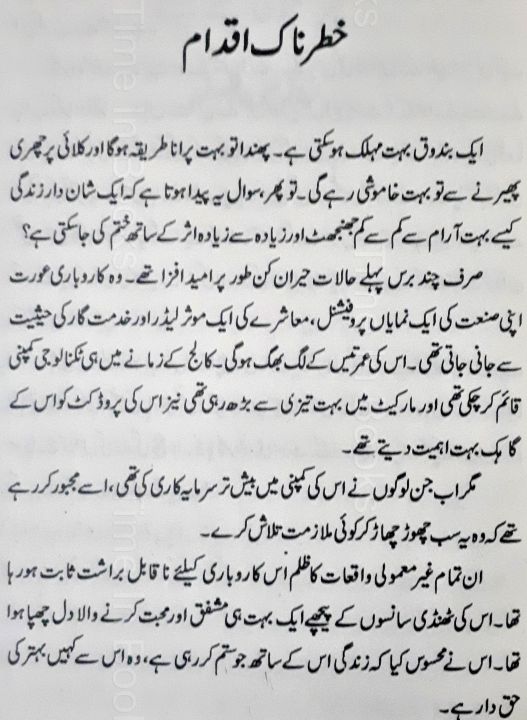 خطرناک اقدام
ایک بندوق بہت مہلک ہوسکتی ہے۔ پھندا تو بہت پرانا طریقہ ہوگا اور کلائی پر چھری
پھیرنے سے تو بہت خاموشی رہے گی۔ تو پھر، سوال یہ پیدا ہوتا ہے کہ ایک شان دار زندگی
کیسے بہت آرام سے کم سے کم جھنجھٹ اور زیادہ سے زیادہ اثر کے ساتھ ختم کی جاسکتی ہے؟
صرف چند برس پہلے حالات حیران کن طور پر امید افزا تھے۔ وہ کاروباری عورت
اپنی صنعت کی ایک نمایاں پروفیشنل، معاشرے کی ایک موثر لیڈر اور خدمت گار کی حیثیت
سے جانی جاتی تھی۔ اس کی عمر تیس کے لگ بھگ ہوگی۔ کالج کے زمانے میں ہی ٹکنالوجی کمپنی
قائم کرچکی تھی اور مارکیٹ میں بہت تیزی سے بڑھ رہی تھی نیز اس کی پروڈکٹ کو اس کے
گاہک بہت اہمیت دیتے تھے۔
مگر اب جن لوگوں نے اس کی کمپنی میں بیش تر سرمایہ کاری کی تھی، اسے مجبور کررہے
تھے کہ وہ یہ سب چھوڑ چھاڑ کر کوئی ملازمت تلاش کرے۔
ان تمام غیر معمولی واقعات کا ظلم اس کاروباری کیلئے ناقابل براشت ثابت ہورہا
تھا۔ اس کی ٹھنڈی سانسوں کے پیچھے ایک بہت ہی مشفق اور محبت کرنے والا دل چھپا ہوا
تھا۔ اس نے محسوس کیا کہ زندگی اس کے ساتھ جو ستم کررہی ہے، وہ اس سے کہیں بہتر کی
حق دار ہے۔